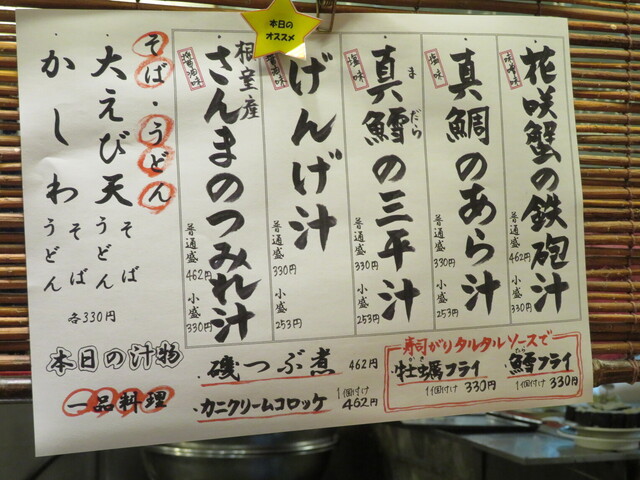 本日の
オススメ
味噌味
花咲蟹の鉄砲汁
普通盛
462円
小盛
330円
塩味
真鯛のあら汁
普通盛
330円
小盛
253円
塩味
真鱈の三平汁
まだら
普通盛
330円
小盛
253円
げんげ汁
普通盛
330円
小盛
253円
根室産
さんまのつみれ汁
普通盛
462円
小盛
330円
そば・うどん
大えび天
そば
うどん
かしわ
そば
うどん
各330円
本日の汁物
一品料理
・磯つぶ煮 462円
・カニクリームコロッケ 1個付け 462円
寿司がりタルタルソースで
・牡蠣フライ
1個付け 330円
・鱈フライ
1個付け 330円